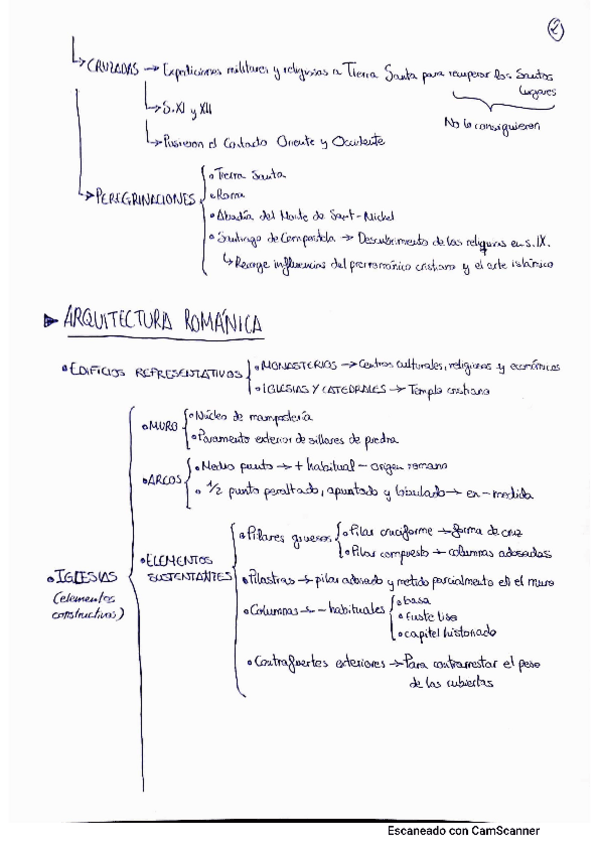 2
↳ CRUZADAS → Expediciones militares y religiosas a Tierra Santa para recuperar los Santos
lugares
No lo consiguieron
↳ S.XI y XII
↳ Pusieron el Contacto Oriente y Occidente
→ PEREGRINACIONES
• Tierra Santa
• Roma
• Abadía del Monte de Saint-Michel
• Santiago de Compostela → Descubrimiento de las reliquias en s. IX.
↳ Recoge influencias del prerrománico cristiano y el arte islámico
► ARQUITECTURA ROMÁNICA
• EDIFICIOS REPRESENTATIVOS
• MONASTERIOS → Centros culturales, religiosos y económicos
• IGLESIAS Y CATEDRALES → Templo cristiano
• IGLESIAS
(elementos
constructivos)
• MURO
• Núcleo de mampostería
• Paramento exterior de sillares de piedra
• ARCOS
• Medio punto → + habitual - origen romano
• 1/2 punto peraltado, apuntado y lobulado → en - medida
• ELEMENTOS
SUSTENTANTES
• Pilares gruesos
• Pilar cruciforme → forma de cruz
• Pilar compuesto → columnas adosadas
• Pilastras → pilar adosado y metido parcialmente en el muro
• Columnas → - habituales
• basa
• fuste liso
• capitel historiado
• Contrafuertes exteriores → Para contrarrestar el peso
de las cubiertas
Escaneado con CamScanner